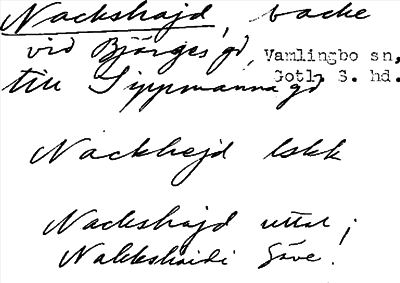 Nackshajd, backe
vid Bjärges gd, Vamlingbo sn,
till Sippmanna gd Gotl. S. hd.
Nackhejd lskk
Nackshajd uttal;
Nakkshaidi Säve!